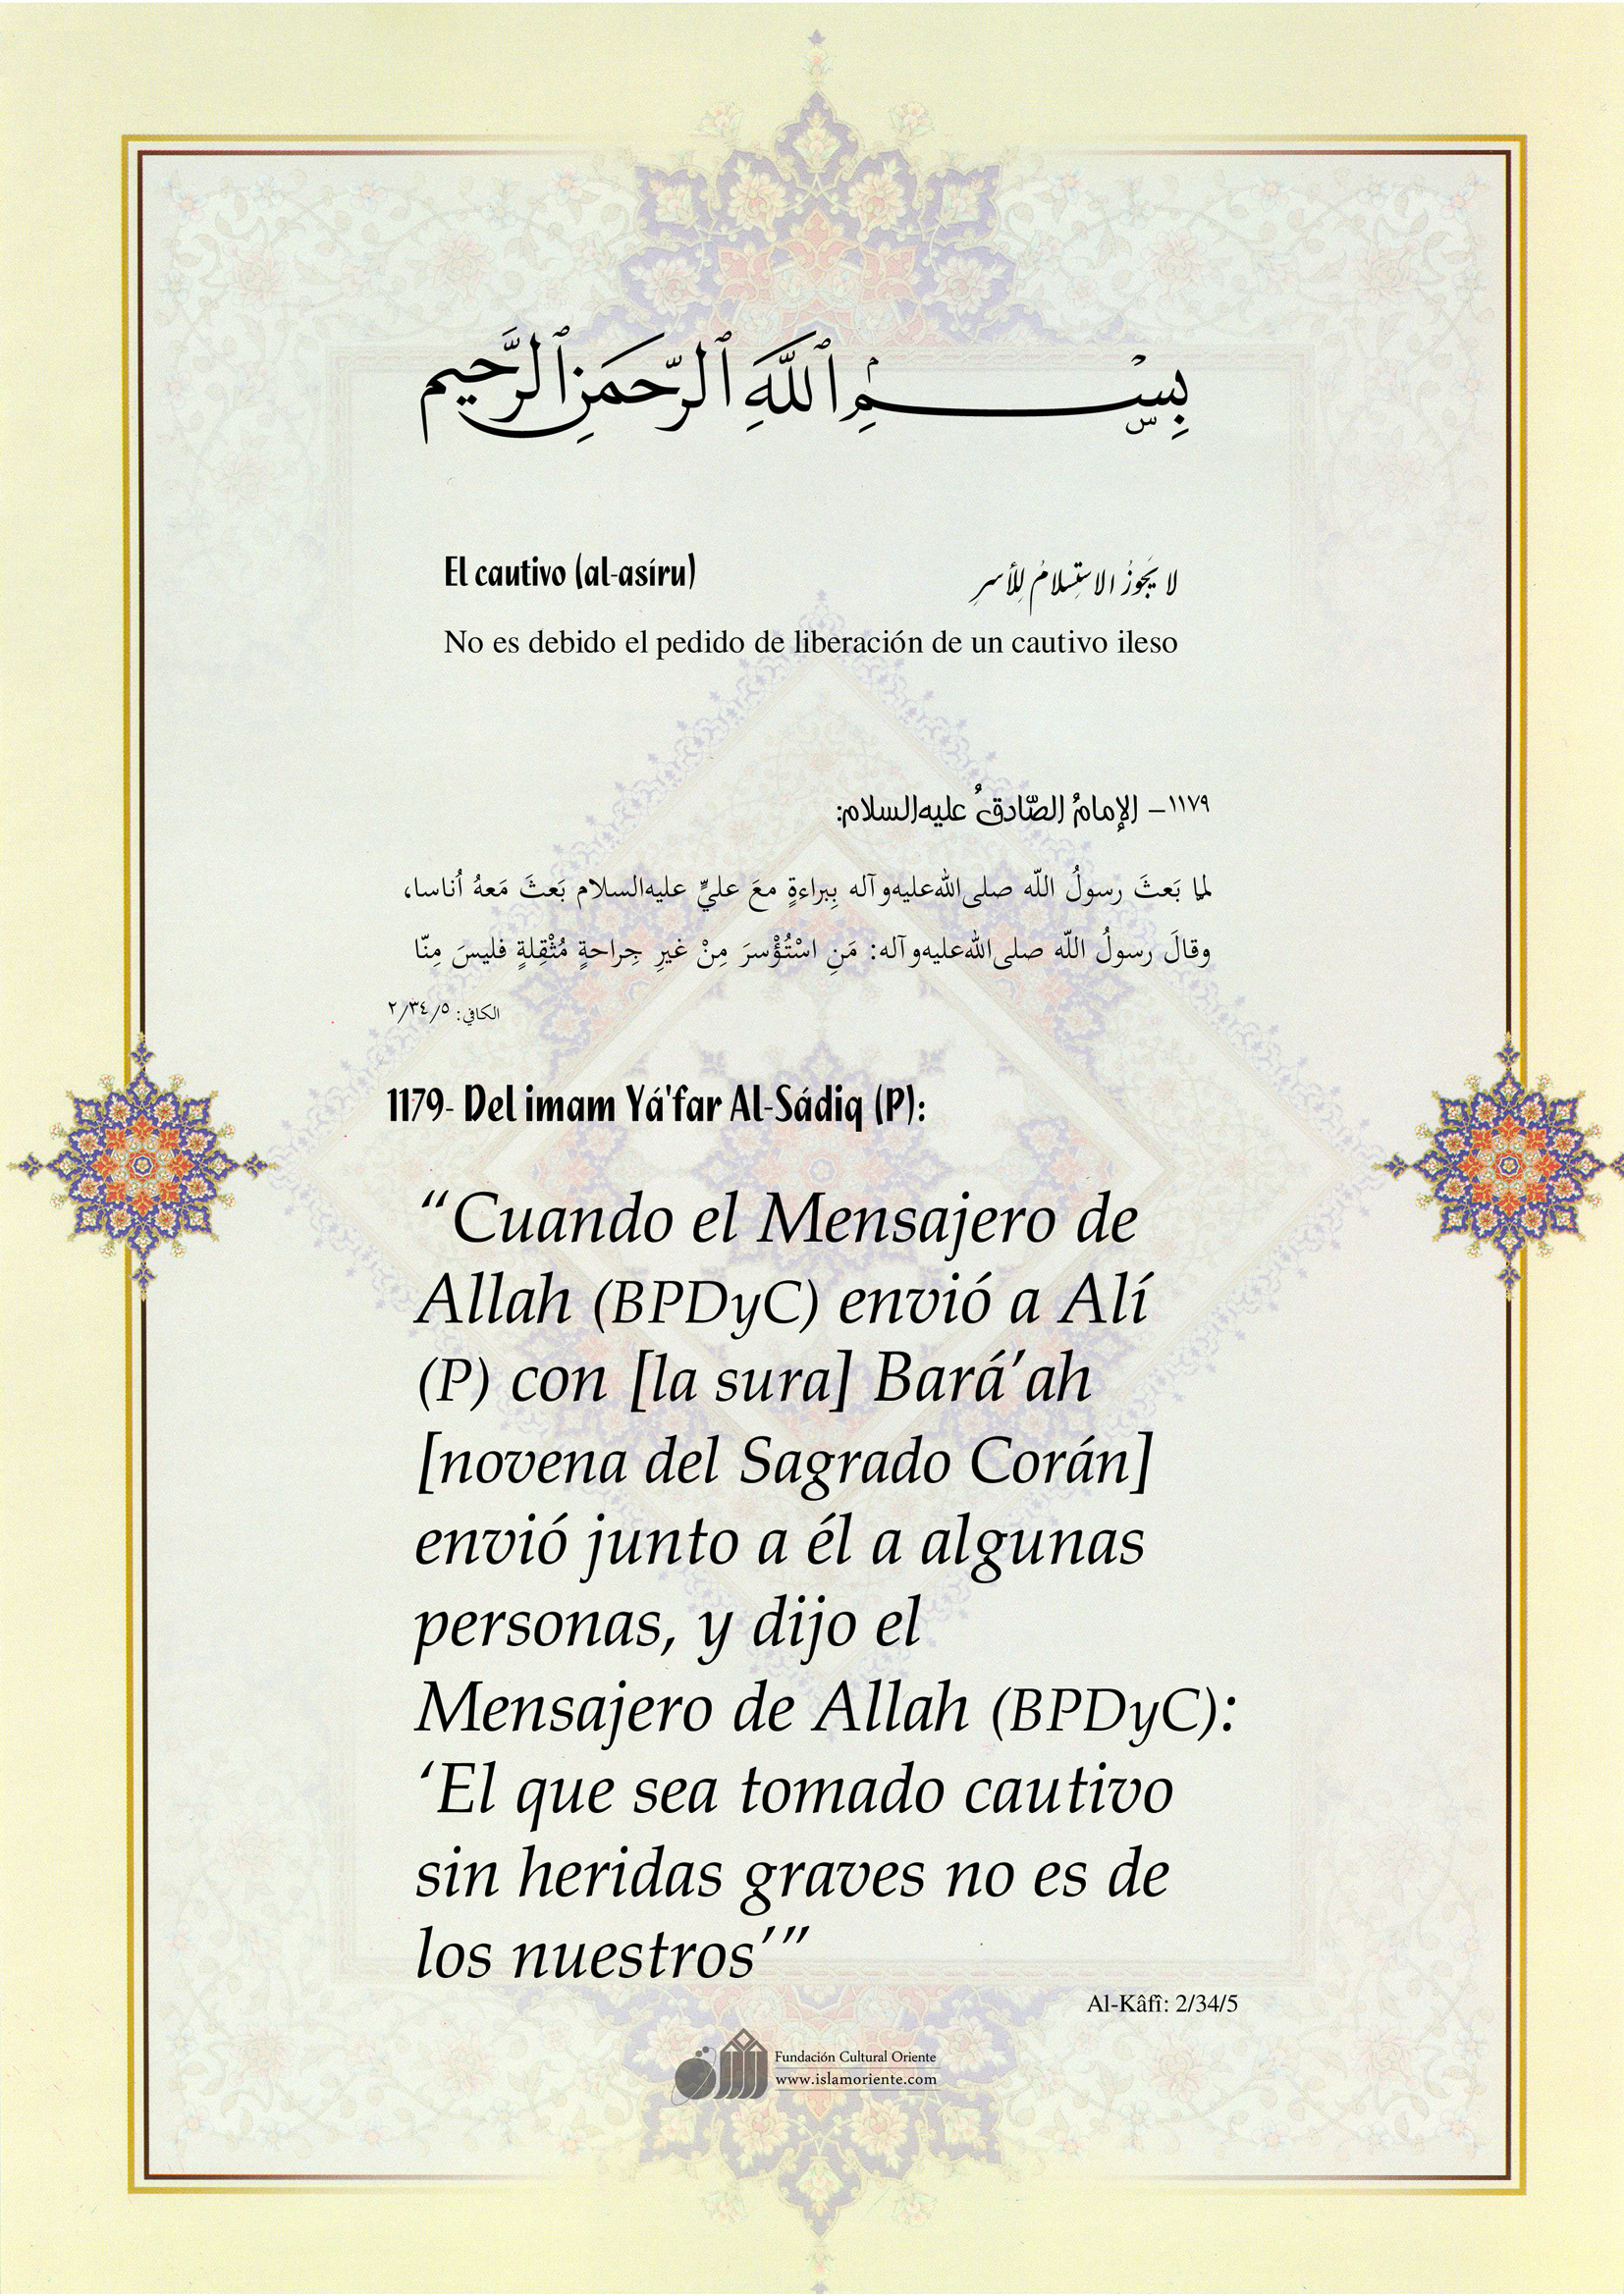 بِسْمِ ٱللَّهِ ٱلرَّحْمَنِ ٱلرَّحِيمِ
El cautivo (al-asíru)
لا يَجُوزُ الاسْتِسْلامُ لِلأسرِ
No es debido el pedido de liberación de un cautivo ileso
١١٧٩– الإمامُ الصّادقُ عليه‌السلام:
لما بَعثَ رسولُ اللّه صلى‌الله‌عليه‌و آله بِبراءةٍ معَ عليٍّ عليه‌السلام بَعثَ مَعهُ اُناسا،
وقالَ رسولُ اللّه صلى‌الله‌عليه‌و آله: مَنِ اسْتُؤْسرَ مِنْ غيرِ جِراحةٍ مُثْقِلةٍ فليسَ مِنّا
الكافي: ٢/٣٤/٥
1179- Del imam Yá'far Al-Sádiq (P):
“Cuando el Mensajero de
Allah (BPDyC) envió a Alí
(P) con [la sura] Bará’ah
[novena del Sagrado Corán]
envió junto a él a algunas
personas, y dijo el
Mensajero de Allah (BPDyC):
‘El que sea tomado cautivo
sin heridas graves no es de
los nuestros’”
Al-Kâfî: 2/34/5
Fundación Cultural Oriente
www.islamoriente.com